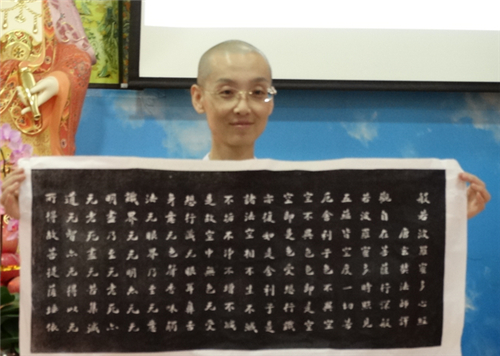 般若波羅蜜多心經
唐玄奘法師譯
觀自在菩薩行深般
若波羅蜜多時照見
五蘊皆空度一切苦
厄舍利子色不異空
空不異色色即是空
空即是色受想行識
亦復如是舍利子是
諸法空相不生不滅
不垢不淨不增不減
是故空中无色无受
想行識无眼耳鼻舌
身意无色聲香味觸
法无眼界乃至无意
識界无无明亦无无
明盡乃至无老死亦
无老死盡无苦集滅
道无智亦无得以无
所得故菩提薩埵依